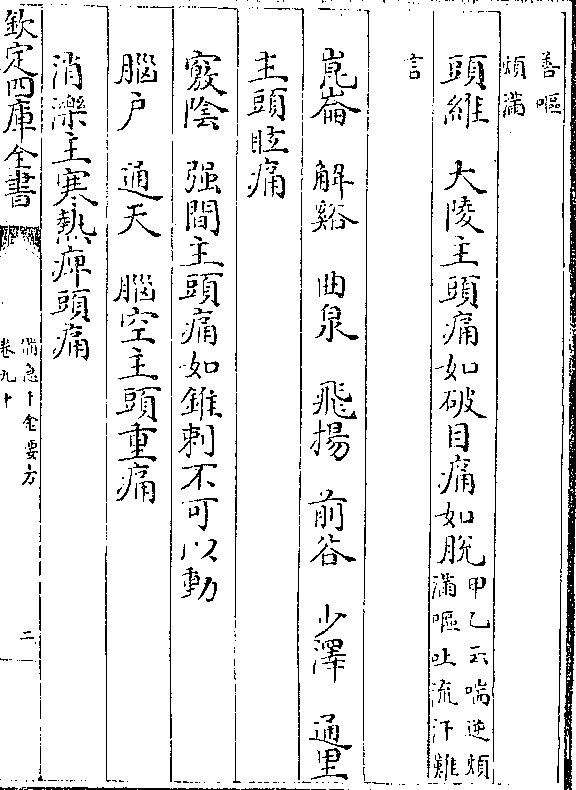 善嘔
煩滿
頭維　大陵主頭痛如破目痛如脫甲乙云喘逆煩
滿嘔吐流汗難
言
崑崙　解谿　曲泉　飛揚　前谷　少澤　通里
主頭眩痛
竅陰　强間主頭痛如錐刺不可以動
腦户　通天　腦空主頭重痛
消濼主寒熱痺頭痛
欽定四庫全書
備急千金要方
卷九十
二